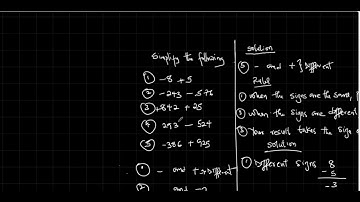 Simplify the following
① -8 + 5
② -243 - 576
③ +842 + 25
④ 293 - 524
⑤ -386 + 925
① - and + → Different
② and
solution
⑤ - and + } Different
Rule
① When the signs are the same,
② When the signs are different
③ Your result takes the sign
solution
① Different signs 8
- 5
-3